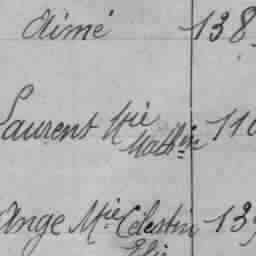 Aimé 138
Laurent Mie
Mathin 110
Ange Mie Célestin 139